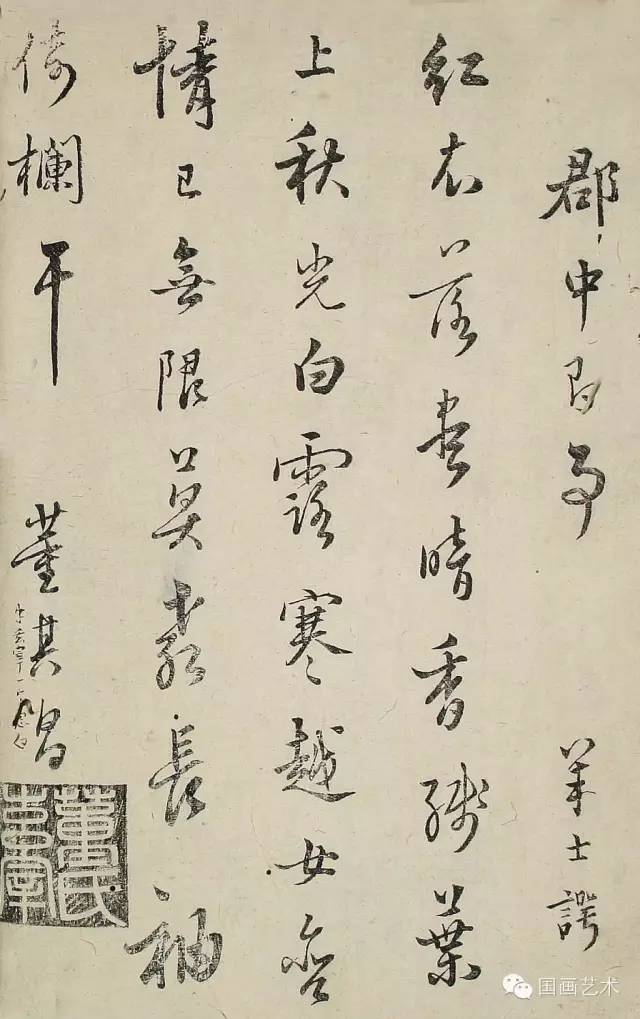 郡中即事 羊士諤
紅衣落盡暗香殘葉
上秋光白露寒越女含
情已無限莫教長袖
倚欄干 董其昌
董氏
国画艺术